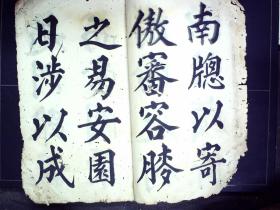 南牕以寄
傲審容膝
之易安園
日涉以成